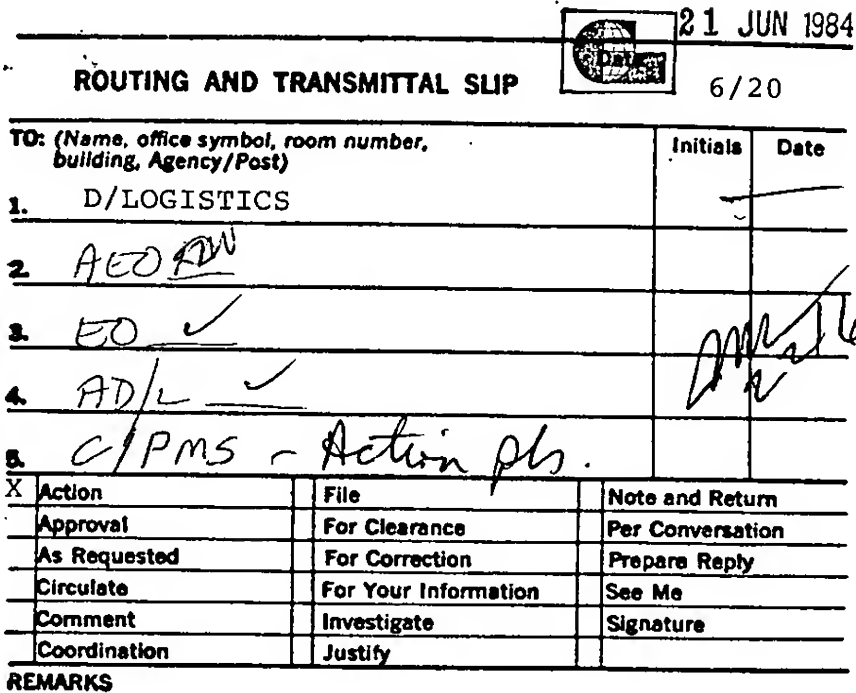 21 JUN 1984
ROUTING AND TRANSMITTAL SLIP
Date
6/20
TO: (Name, office symbol, room number,
building, Agency/Post)
Initials Date
1. D/LOGISTICS
2. AEO
3. EO ✓
4. AD/L ✓
5. C/PMS - Action pls.
X Action File Note and Return
Approval For Clearance Per Conversation
As Requested For Correction Prepare Reply
Circulate For Your Information See Me
Comment Investigate Signature
Coordination Justify
REMARKS